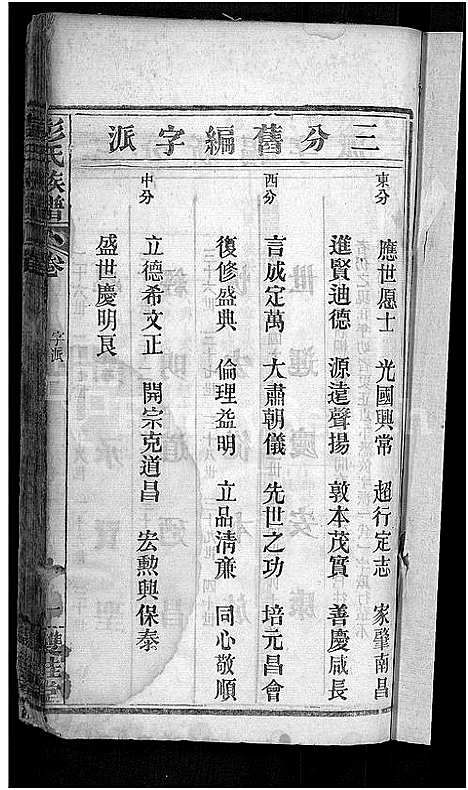 三分舊編字派
東分
應世愿士 光國興常 超行定志 家肇南昌
進賢迪德 源遠聲揚 敦本茂實 善慶咸長
西分
言成定萬 大肅朝儀 先世之功 培元昌會
復修盛典 倫理益明 立品清亷 同心敬順
中分
立德希文正 開宗克道昌 宏勲興保泰
盛世慶明良
彭氏族譜
卷
字派
一
雙桂堂